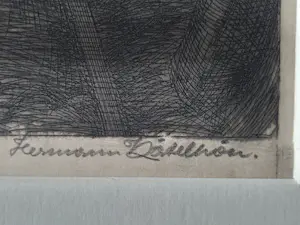 Hermann Kätelhön.